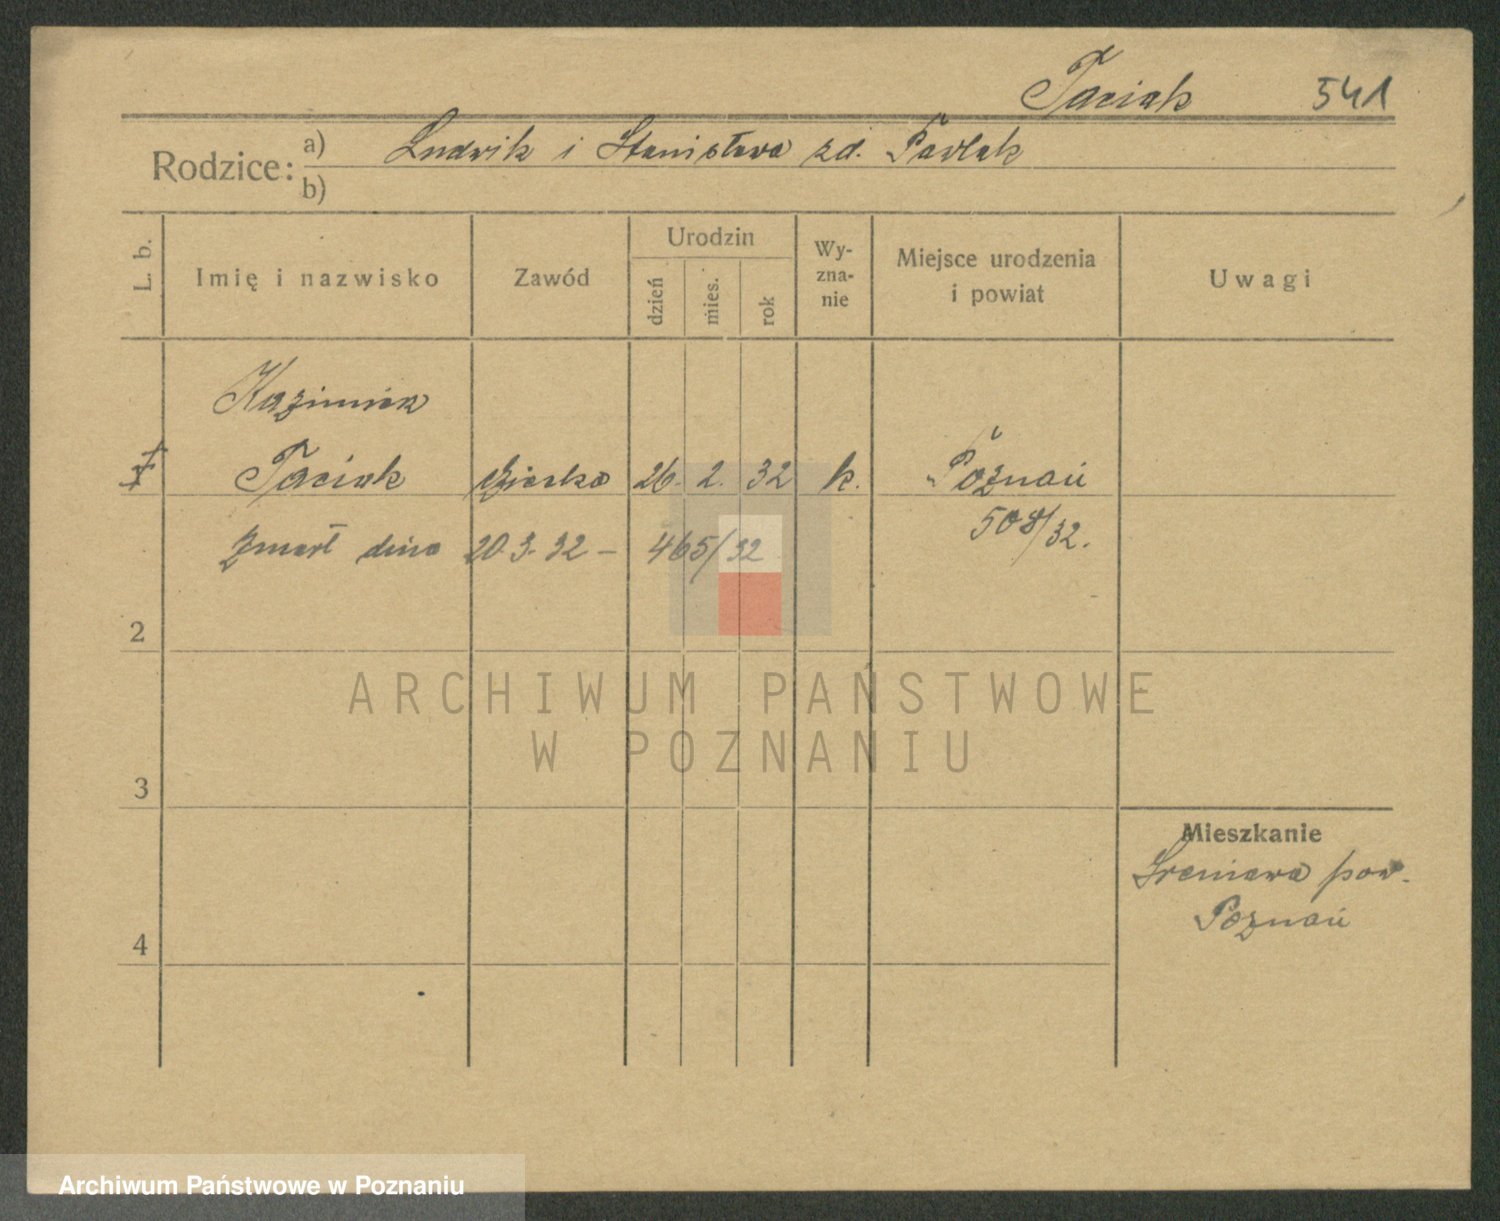 Taciak 541
Rodzice: a) Ludwik i Stanisława zd. Pawlak
b)
L. b.
Imię i nazwisko
Zawód
Urodzin
dzień
mies.
rok
Wy-
zna-
nie
Miejsce urodzenia
i powiat
Uwagi
Kazimierz
1 Taciak dziecko 26. 2. 32 k. Poznań
508/32.
Zmarł dnia 20.3.32 – 465/32
2
3
4
Mieszkanie
pow.
Poznań
ARCHIWUM PAŃSTWOWE
W POZNANIU
Archiwum Państwowe w Poznaniu